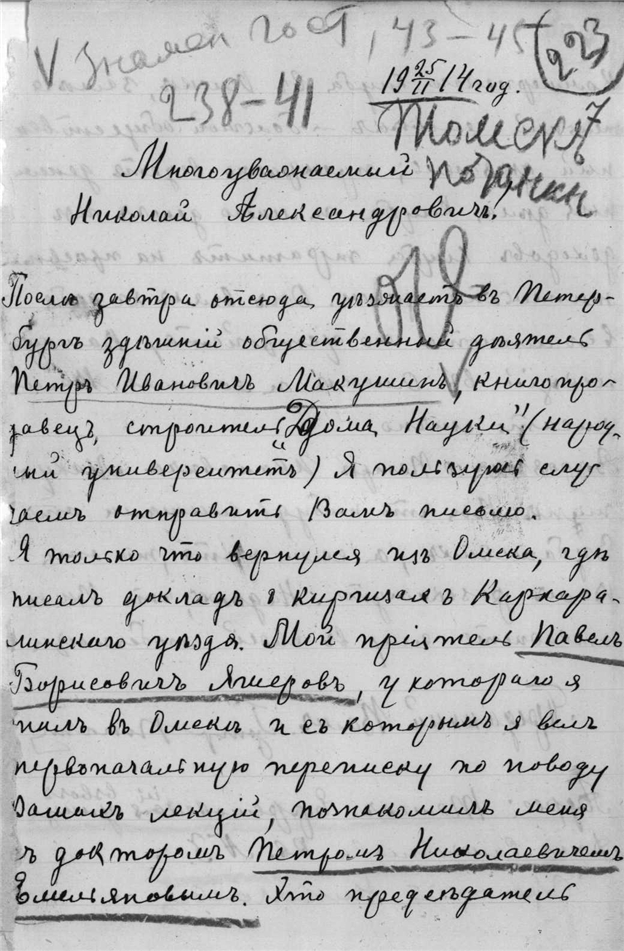 V Знамен гост, 43-45
223
238-41
19 25/II 14 год.
Томск 7
Потанин
Многоуважаемый
Николай Александровичъ!
После завтра отсюда уѣзжаетъ въ Петер-
бургъ здѣшній общественный дѣятель
Петръ Ивановичъ Макушинъ, книгопро-
давецъ, строитель „Дома Науки" (народ-
ный университетъ) Я пользуюсь слу-
чаемъ отправить Вамъ письмо.
Я только что вернулся изъ Омска, гдѣ
писалъ докладъ о киргизахъ Каркара-
линскаго уѣзда. Мой пріятель Павелъ
Борисовичъ Яшеровъ, у котораго я
жилъ въ Омскѣ и съ которымъ я велъ
первоначальную переписку по поводу
Вашихъ лекцій, познакомилъ меня
съ докторомъ Петромъ Николаевичемъ
Емельяновымъ. Это предсѣдатель